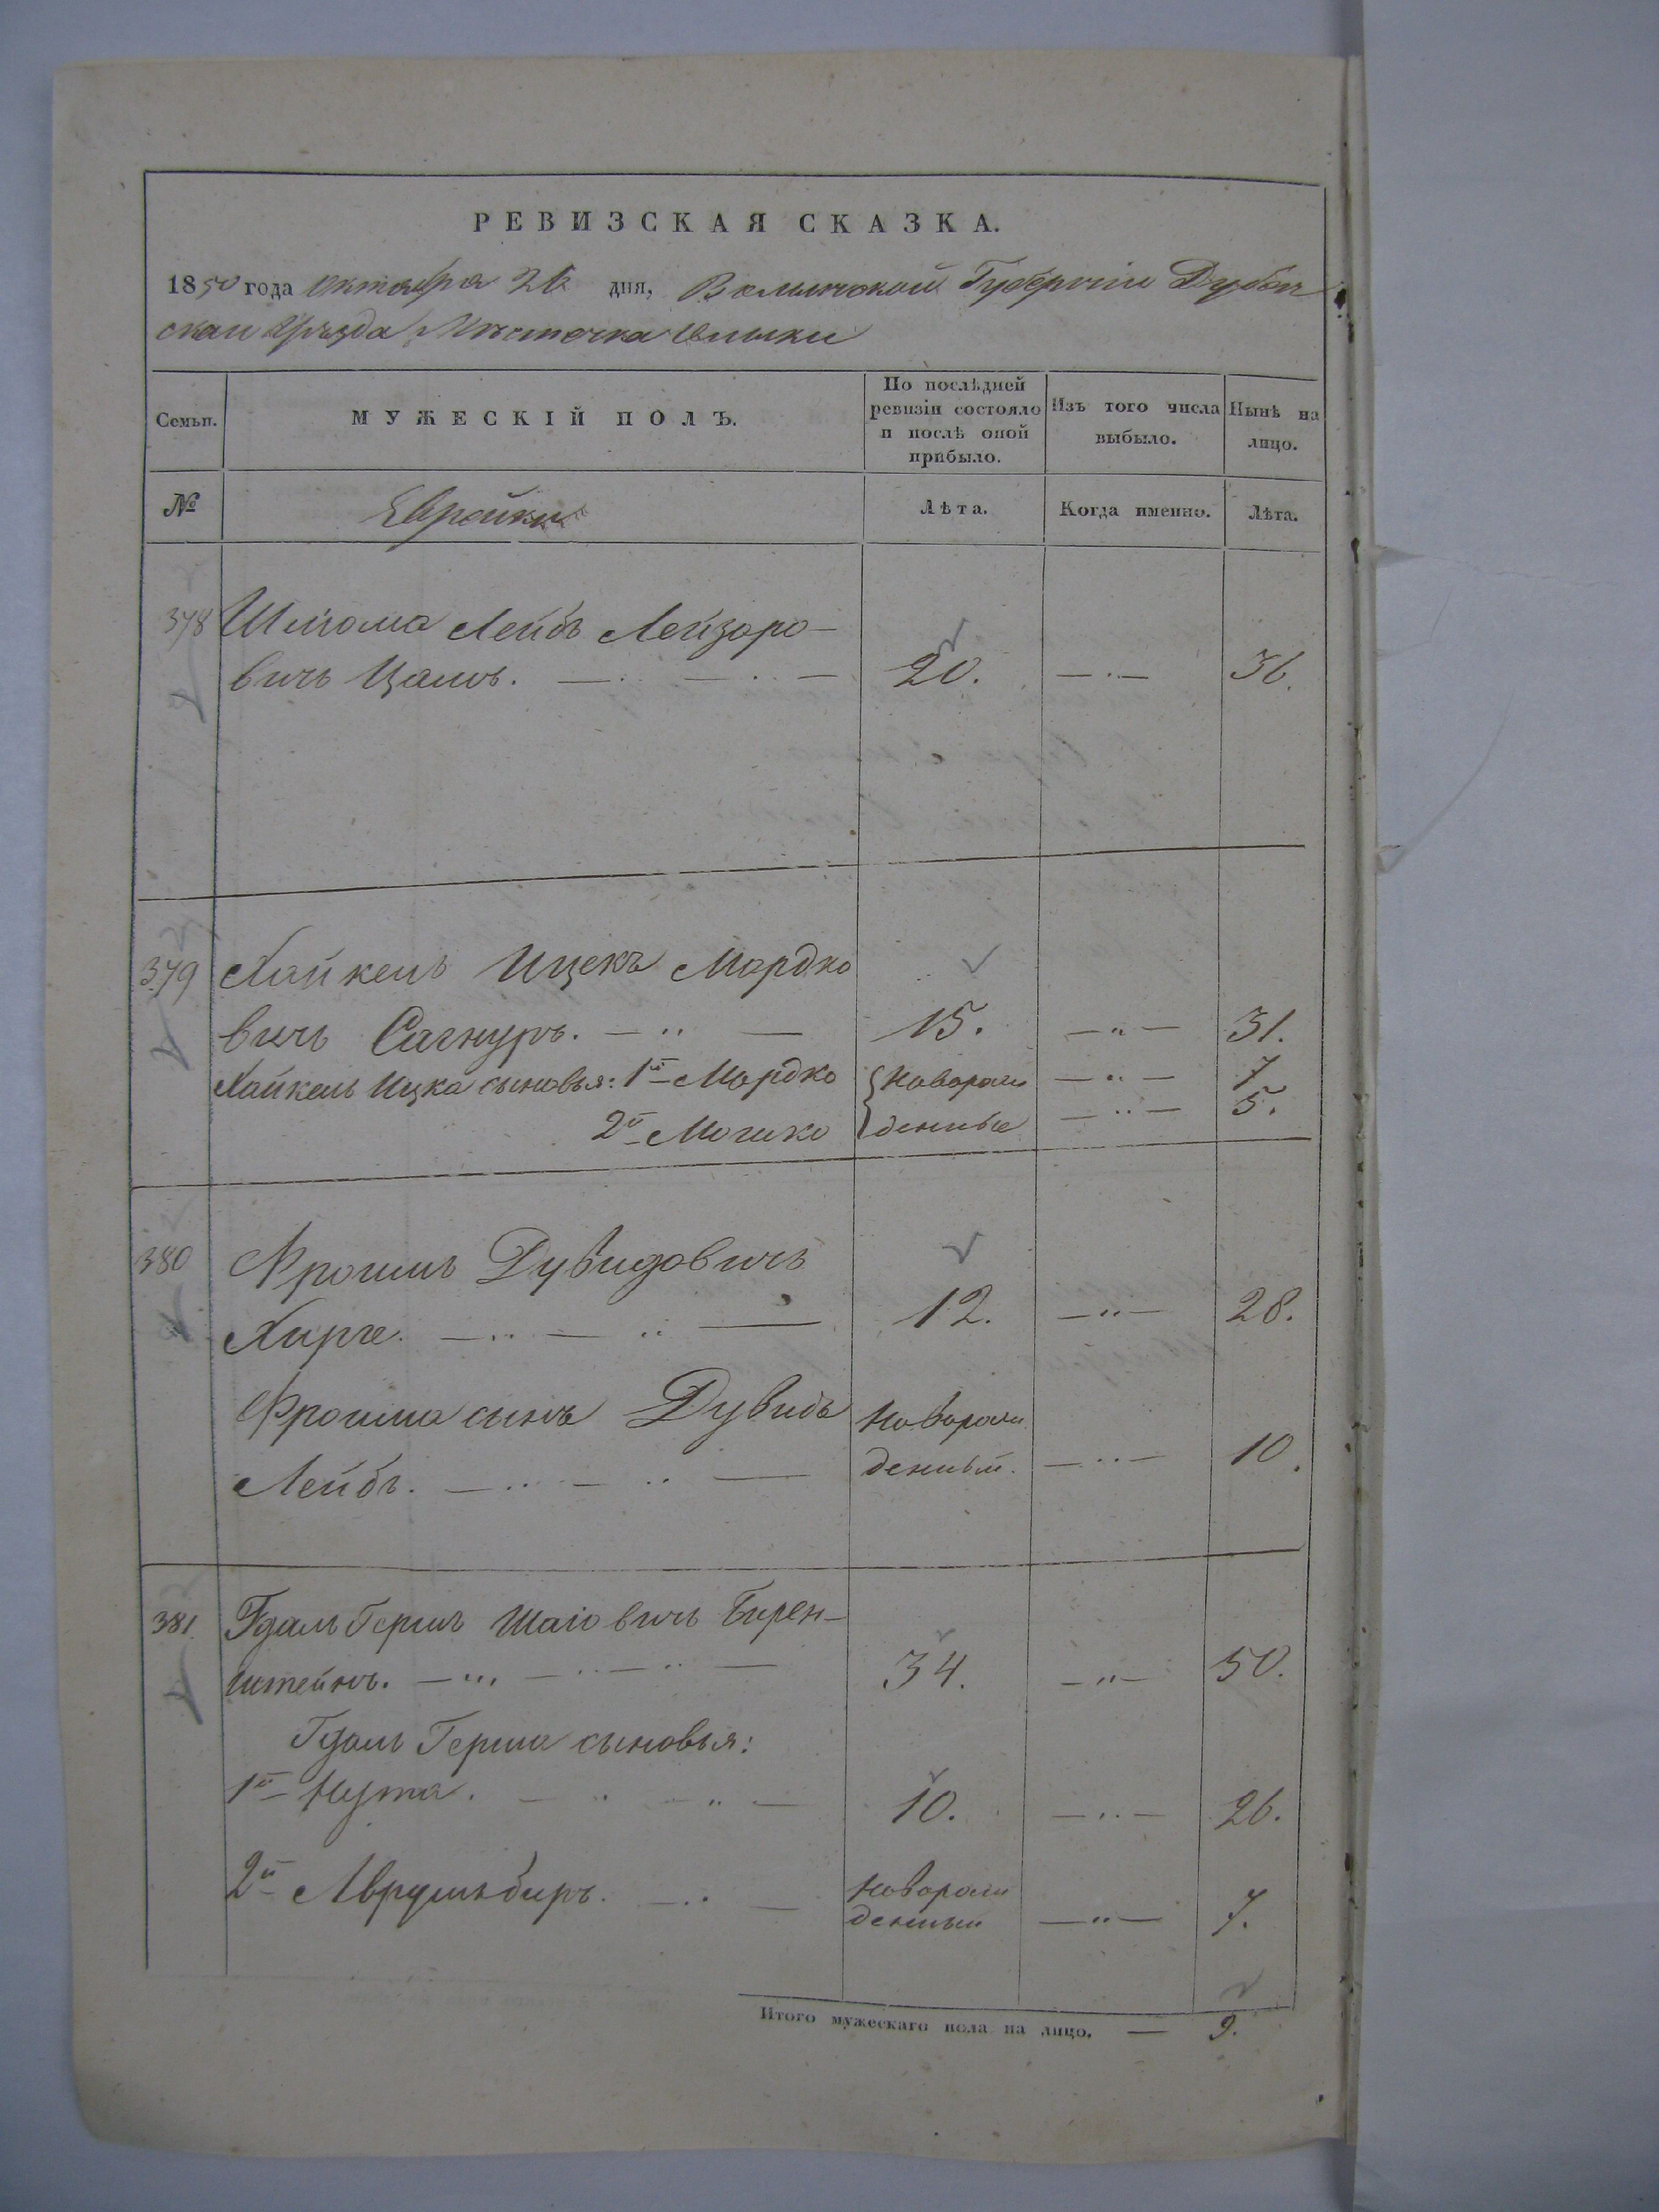 РЕВИЗСКАЯ СКАЗКА.
1850 года Октября 26 дня, Волынской Губерніи Дубен
скаи Уѣзда Мѣстечка Олыки
Семьи.
МУЖЕСКІЙ ПОЛЪ.
По послѣдней ревизіи состояло и послѣ оной прибыло.
Изъ того числа выбыло.
Нынѣ на лицо.
№
Евреи
Лѣта.
Когда именно.
Лѣта.
378 Шліома Лейбъ Лейзоро-
вичъ Цалъ. 20. 36.
379 Хайкель Ицекъ Мордко
вичъ 15. 31.
Хайкель Ицка сыновья: 1й Мордко Новорож 7
2й Мошко денные 5.
380 Фроимъ Дувидовичъ
12. 28.
Фроима сынъ Дувидъ Новорож
Лейбъ. денный. 10.
381 Гдаль Гершъ Шаіовичъ Бирен-
штейнъ. 34. 50.
Гдаль Герша сыновья:
1й Нута. 10. 26.
2й Новорож
денный 7.
Итого мужескаго пола на лицо. — 9.